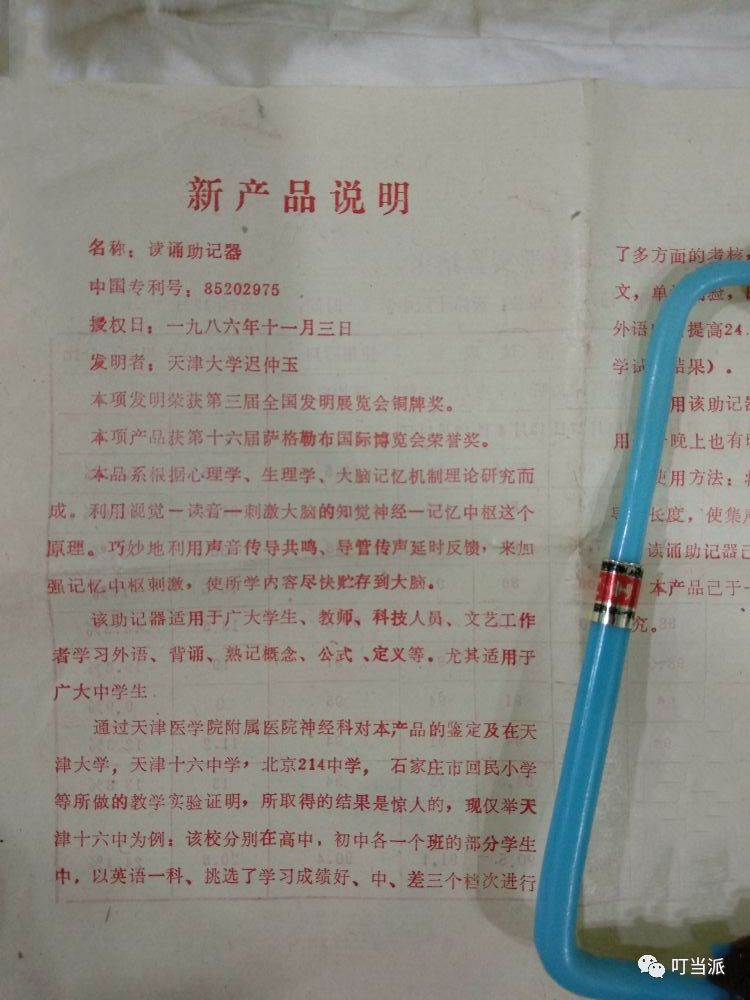 新产品说明
名称：读诵助记器
中国专利号：85202975
授权日：一九八六年十一月三日
发明者：天津大学迟仲玉
本项发明荣获第三届全国发明展览会铜牌奖。
本项产品获第十六届萨格勒布国际博览会荣誉奖。
本品系根据心理学、生理学、大脑记忆机制理论研究而
成。利用视觉—读音—刺激大脑的知觉神经—记忆中枢这个
原理。巧妙地利用声音传导共鸣、导管传声延时反馈，来加
强记忆中枢刺激，使所学内容尽快贮存到大脑。
该助记器适用于广大学生、教师、科技人员、文艺工作
者学习外语、背诵、熟记概念、公式、定义等。尤其适用于
广大中学生
通过天津医学院附属医院神经科对本产品的鉴定及在天
津大学，天津十六中学，北京214中学，石家庄市回民小学
等所做的教学实验证明，所取得的结果是惊人的，现仅举天
津十六中为例：该校分别在高中，初中各一个班的部分学生
中，以英语一科、挑选了学习成绩好、中、差三个档次进行
了多方面的考核，
文，单 验，
外语 提高24.
学试 结果）。
用该助记器
用 晚上也有
使用方法：
长度，使集声
读诵助记器已
本产品已于
究。
叮当派